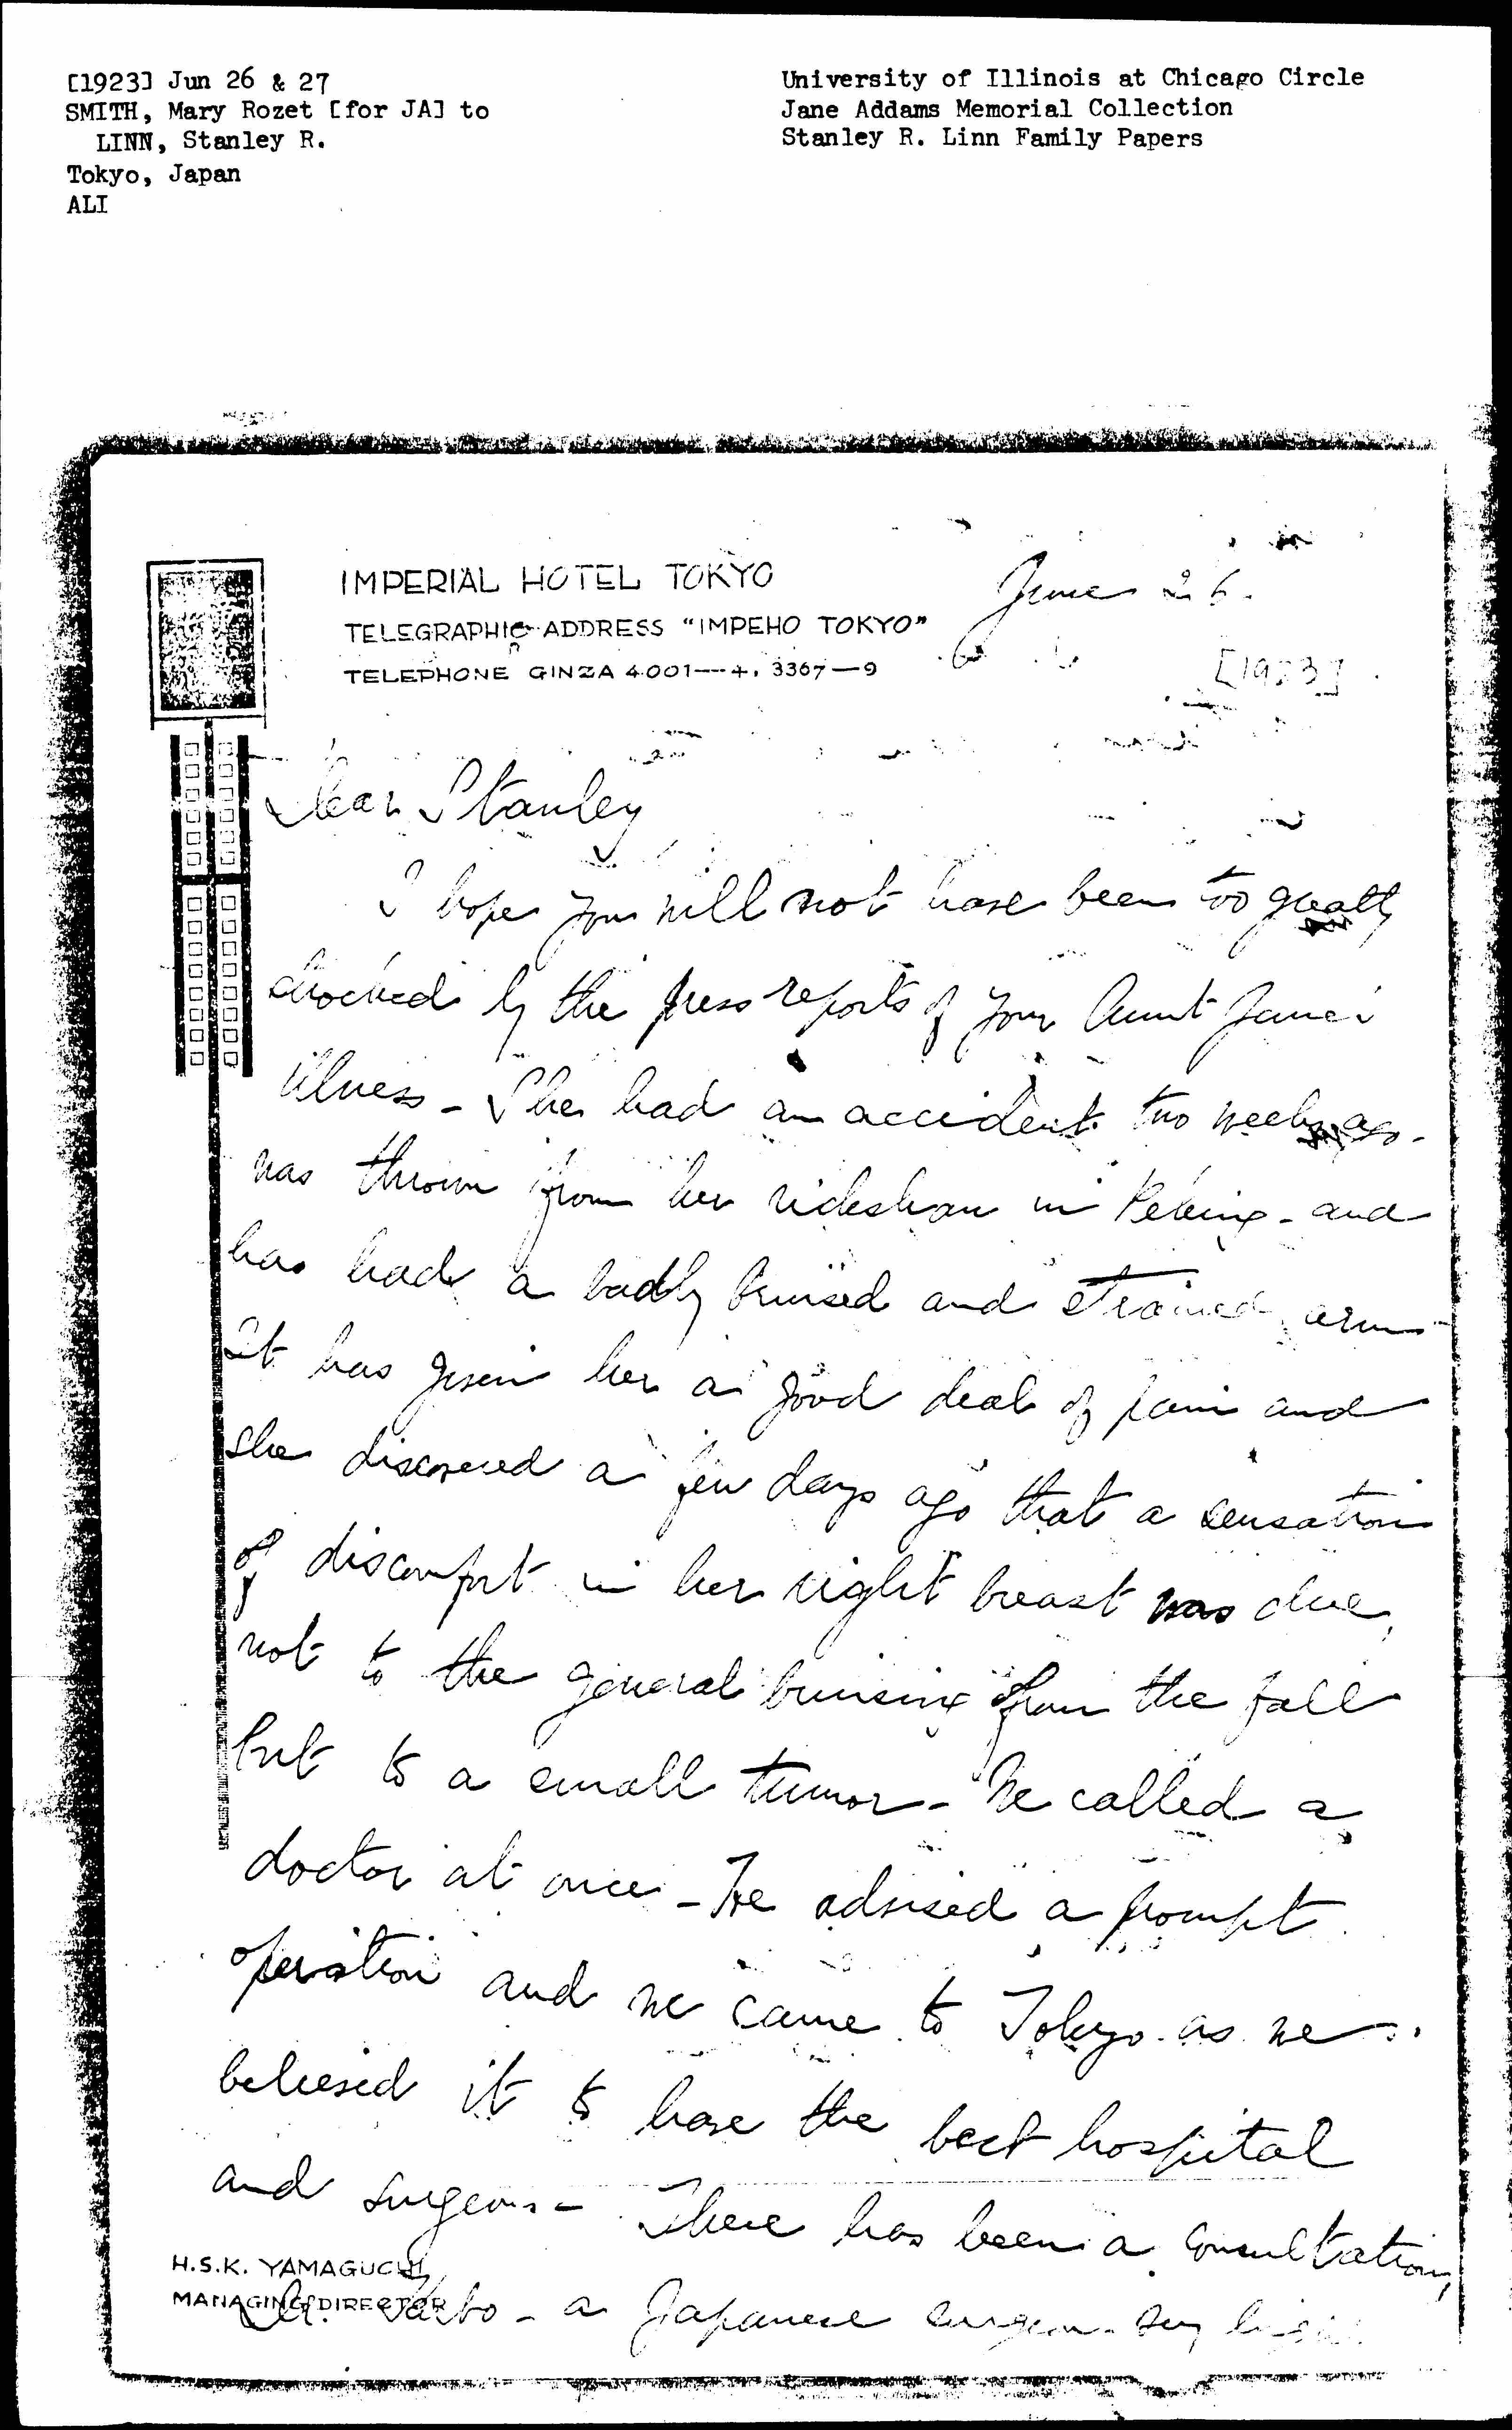 [1923] Jun 26 & 27
SMITH, Mary Rozet [for JA] to
LINN, Stanley R.
Tokyo, Japan
ALI
University of Illinois at Chicago Circle
Jane Addams Memorial Collection
Stanley R. Linn Family Papers
IMPERIAL HOTEL TOKYO
TELEGRAPHIC ADDRESS "IMPEHO TOKYO"
TELEPHONE GINZA 4001—4, 3367—9
June 26.
[1923]
Dear Stanley
I hope you will not have been too greatly
shocked by the press reports of your Aunt Jane's
illness - She had an accident two weeks ago -
was thrown from her rickshaw in Peking - and
has had a badly bruised and strained arm -
It has given her a good deal of pain and
she discovered a few days ago that a sensation
of discomfort in her right breast was due,
not to the general bruising from the fall
but to a small tumor - We called a
doctor at once - He advised a prompt
operation and we came to Tokyo as we
believed it to have the best hospital
and surgeons - There has been a consultation,
H.S.K. YAMAGUCHI
MANAGING DIRECTOR
Dr. - a Japanese surgeon -